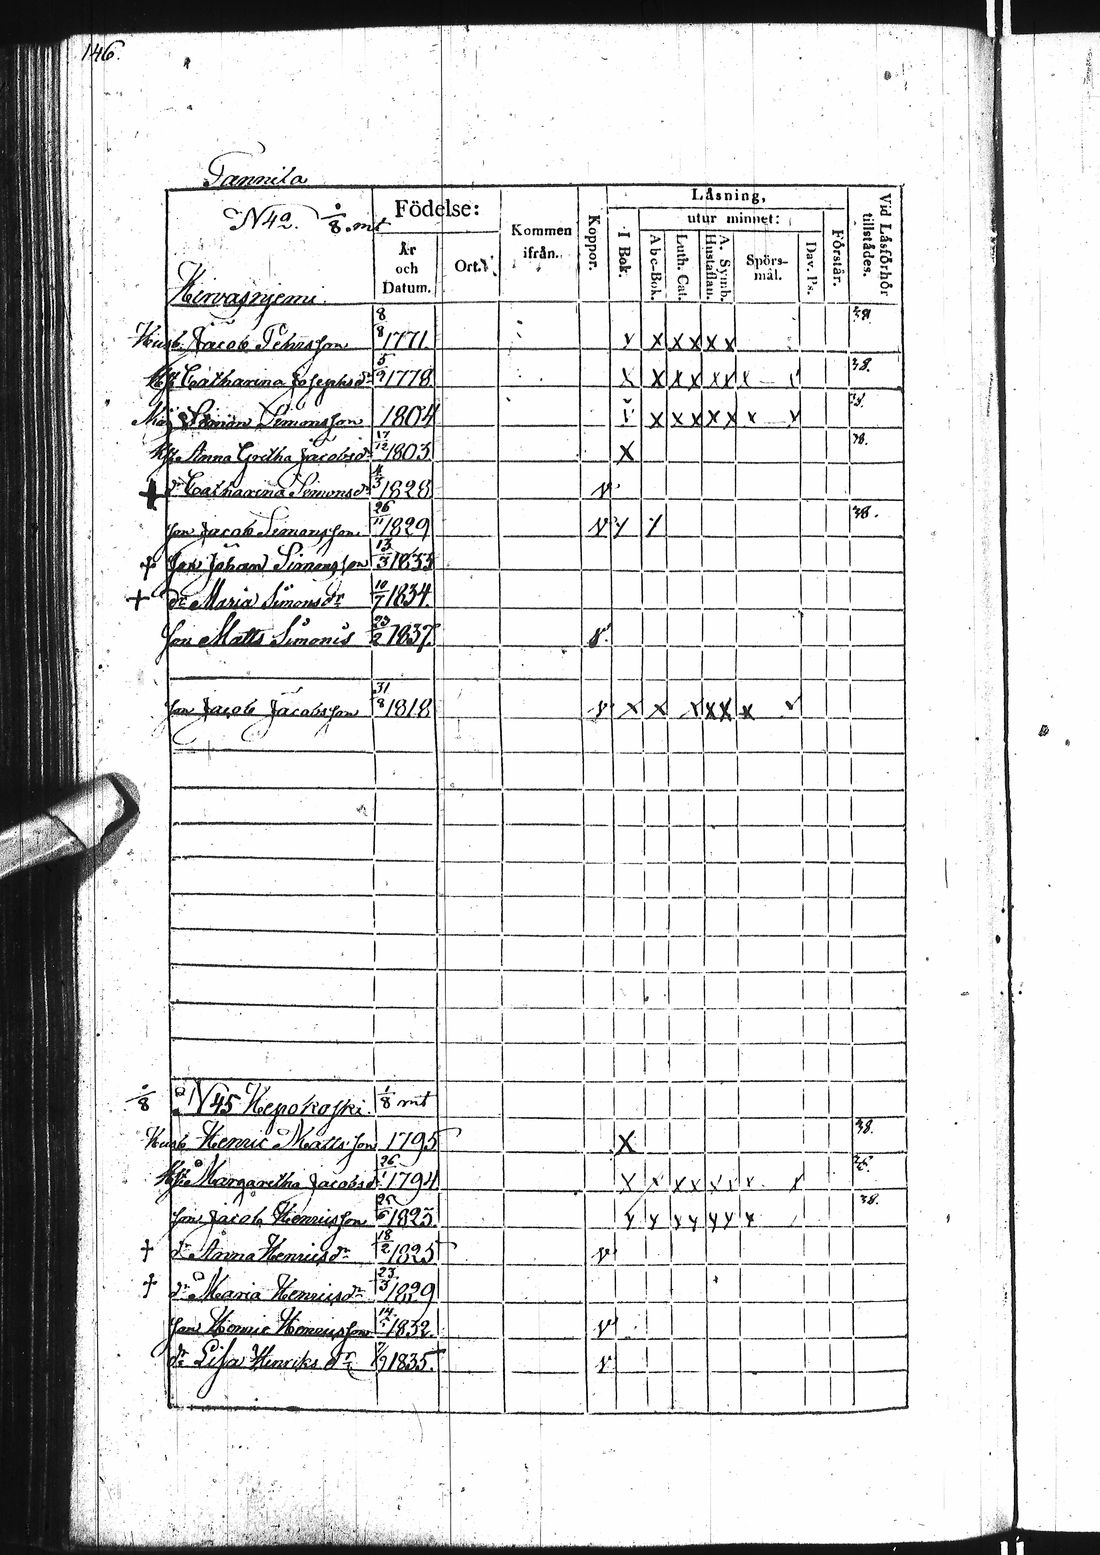 146.
Tannila
N 42. 1/8 mt
Hirvasnjemi.
Födelse:
År och Datum.
Ort.
Kommen ifrån.
Koppor.
Låsning,
I Bok.
utur minnet:
Abc-Bok.
Luth. Cat.
A. Symb. Hustaflan.
Spörs-mål.
Dav. Ps.
Förstår.
Vid Låsförhör tillstådes.
Husb. Jacob Pehrsson 8/8 1771 v x x x x x 38
Hu Catharina Josephsdr 5/9 1778 x x x x x x x v 38.
Måg Simon Simonsson 1804 v x x x x x x v 38.
Hu Anna Gretha Jacobsdr 17/12 1803 x 38.
+ dr Catharina Simonsdr 4/3 1828 v
Son Jacob Simonsson 26/11 1829 v 38.
+ Son Johan Simonsson 13/3 1833
+ dr Maria Simonsdr 10/7 1834.
Son Matts Simons 23/2 1837. v
Son Jacob Jacobsson 31/8 1818 v x x x x x x v
1/8 N 45 Kepokoski. 1/8 mt
Husb Henric Mattsson 1795 x 38.
Hu Margaretha Jacobsd. 26/1 1794 x x x x x x x x
Son Jacob Henricsson 25/6 1823 38.
+ dr Anna Henricsdr 18/2 1825 v
+ dr Maria Henricsdr 23/3 1829
Son Henric Henricsson 1832. v
dr Lisa Henriks dr 7/9 1835. v